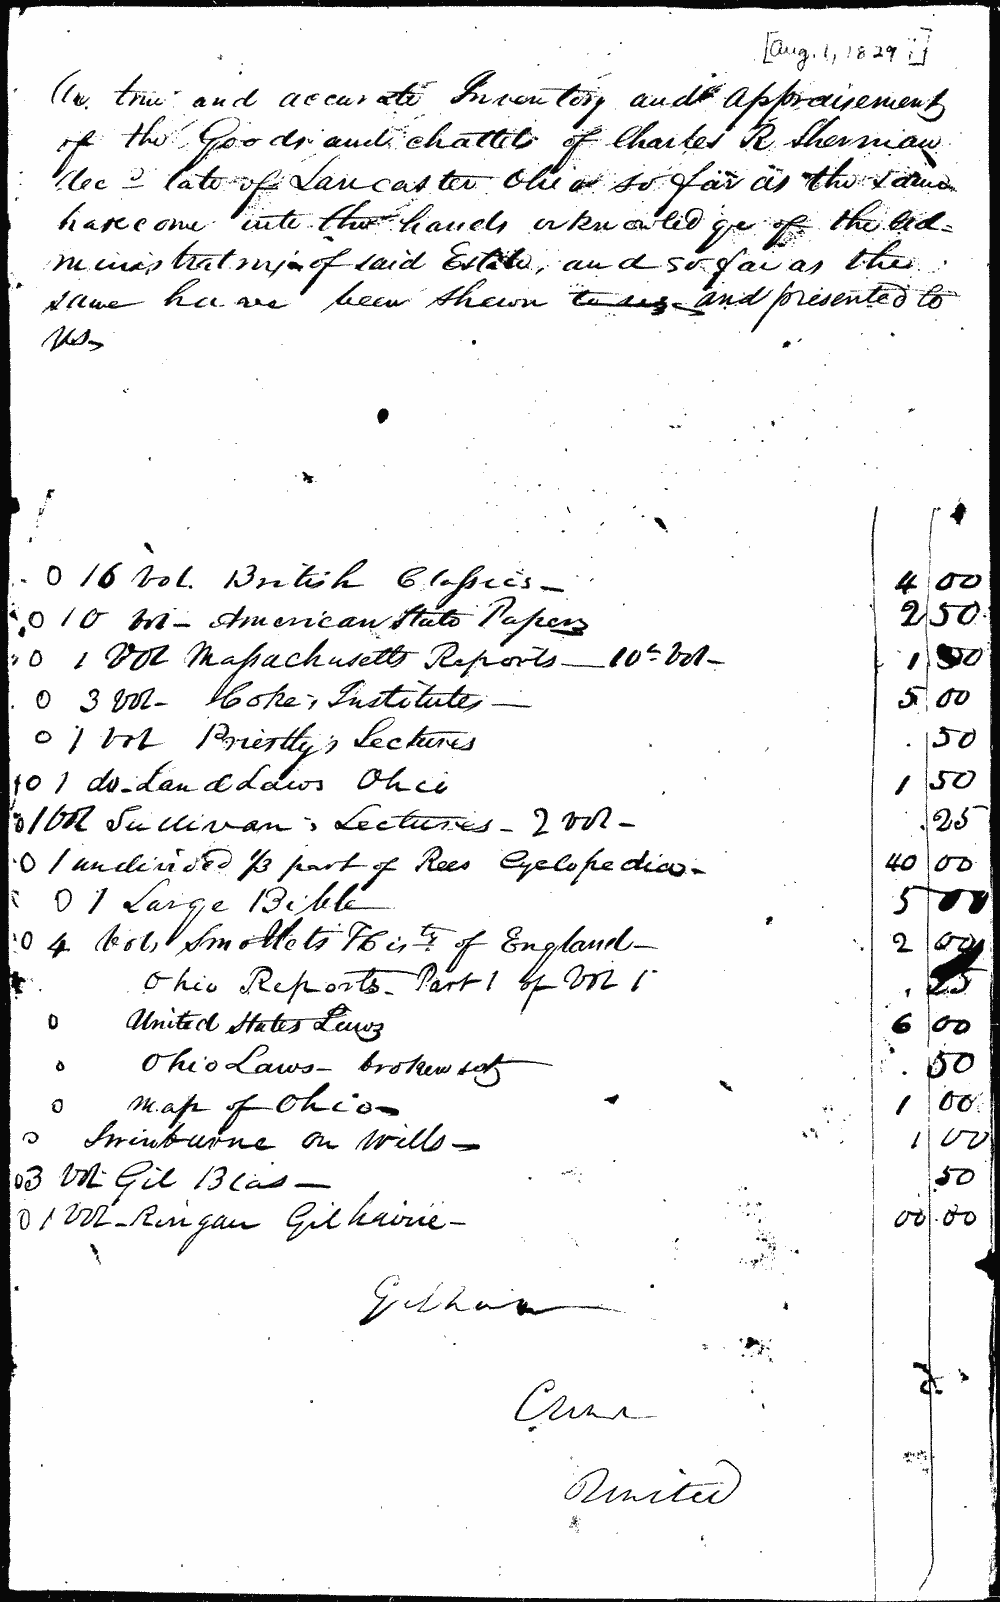 [Aug. 1, 1829 ?]
A true and accurate Inventory and appraisement
of the Goods and chattels of Charles R Sherman
decd late of Lancaster Ohio so far as the same
have come into the hands or knowledge of the Ad-
ministratrix of said Estate, and so far as the
same have been shewn to us and presented to
us-
0 16 Vol. British Classics - 4 00
0 10 Vol - American State Papers 2 50
0 1 Vol Massachusetts Reports - 10th Vol - 1 00
0 3 Vol - Coke's Institutes - 5 00
0 1 Vol Priestly's Lectures . 50
0 1 do - Land Laws Ohio 1 50
0 1 Vol Sullivan's Lectures - 2 Vol - . 25
0 1 undivided 1/3 part of Rees Cyclopedia - 40 00
0 1 Large Bible 5 00
0 4 Vols Smollets History of England - 2 00
Ohio Reports - Part 1 of Vol 1 . 25
0 United States Laws 6 00
0 Ohio Laws - broken sets . 50
0 Map of Ohio - 1 00
0 Swinburne on Wills - 1 00
0 3 Vol Gil Blas - . 50
0 1 Vol - Ringan Gilhaize - 00.00